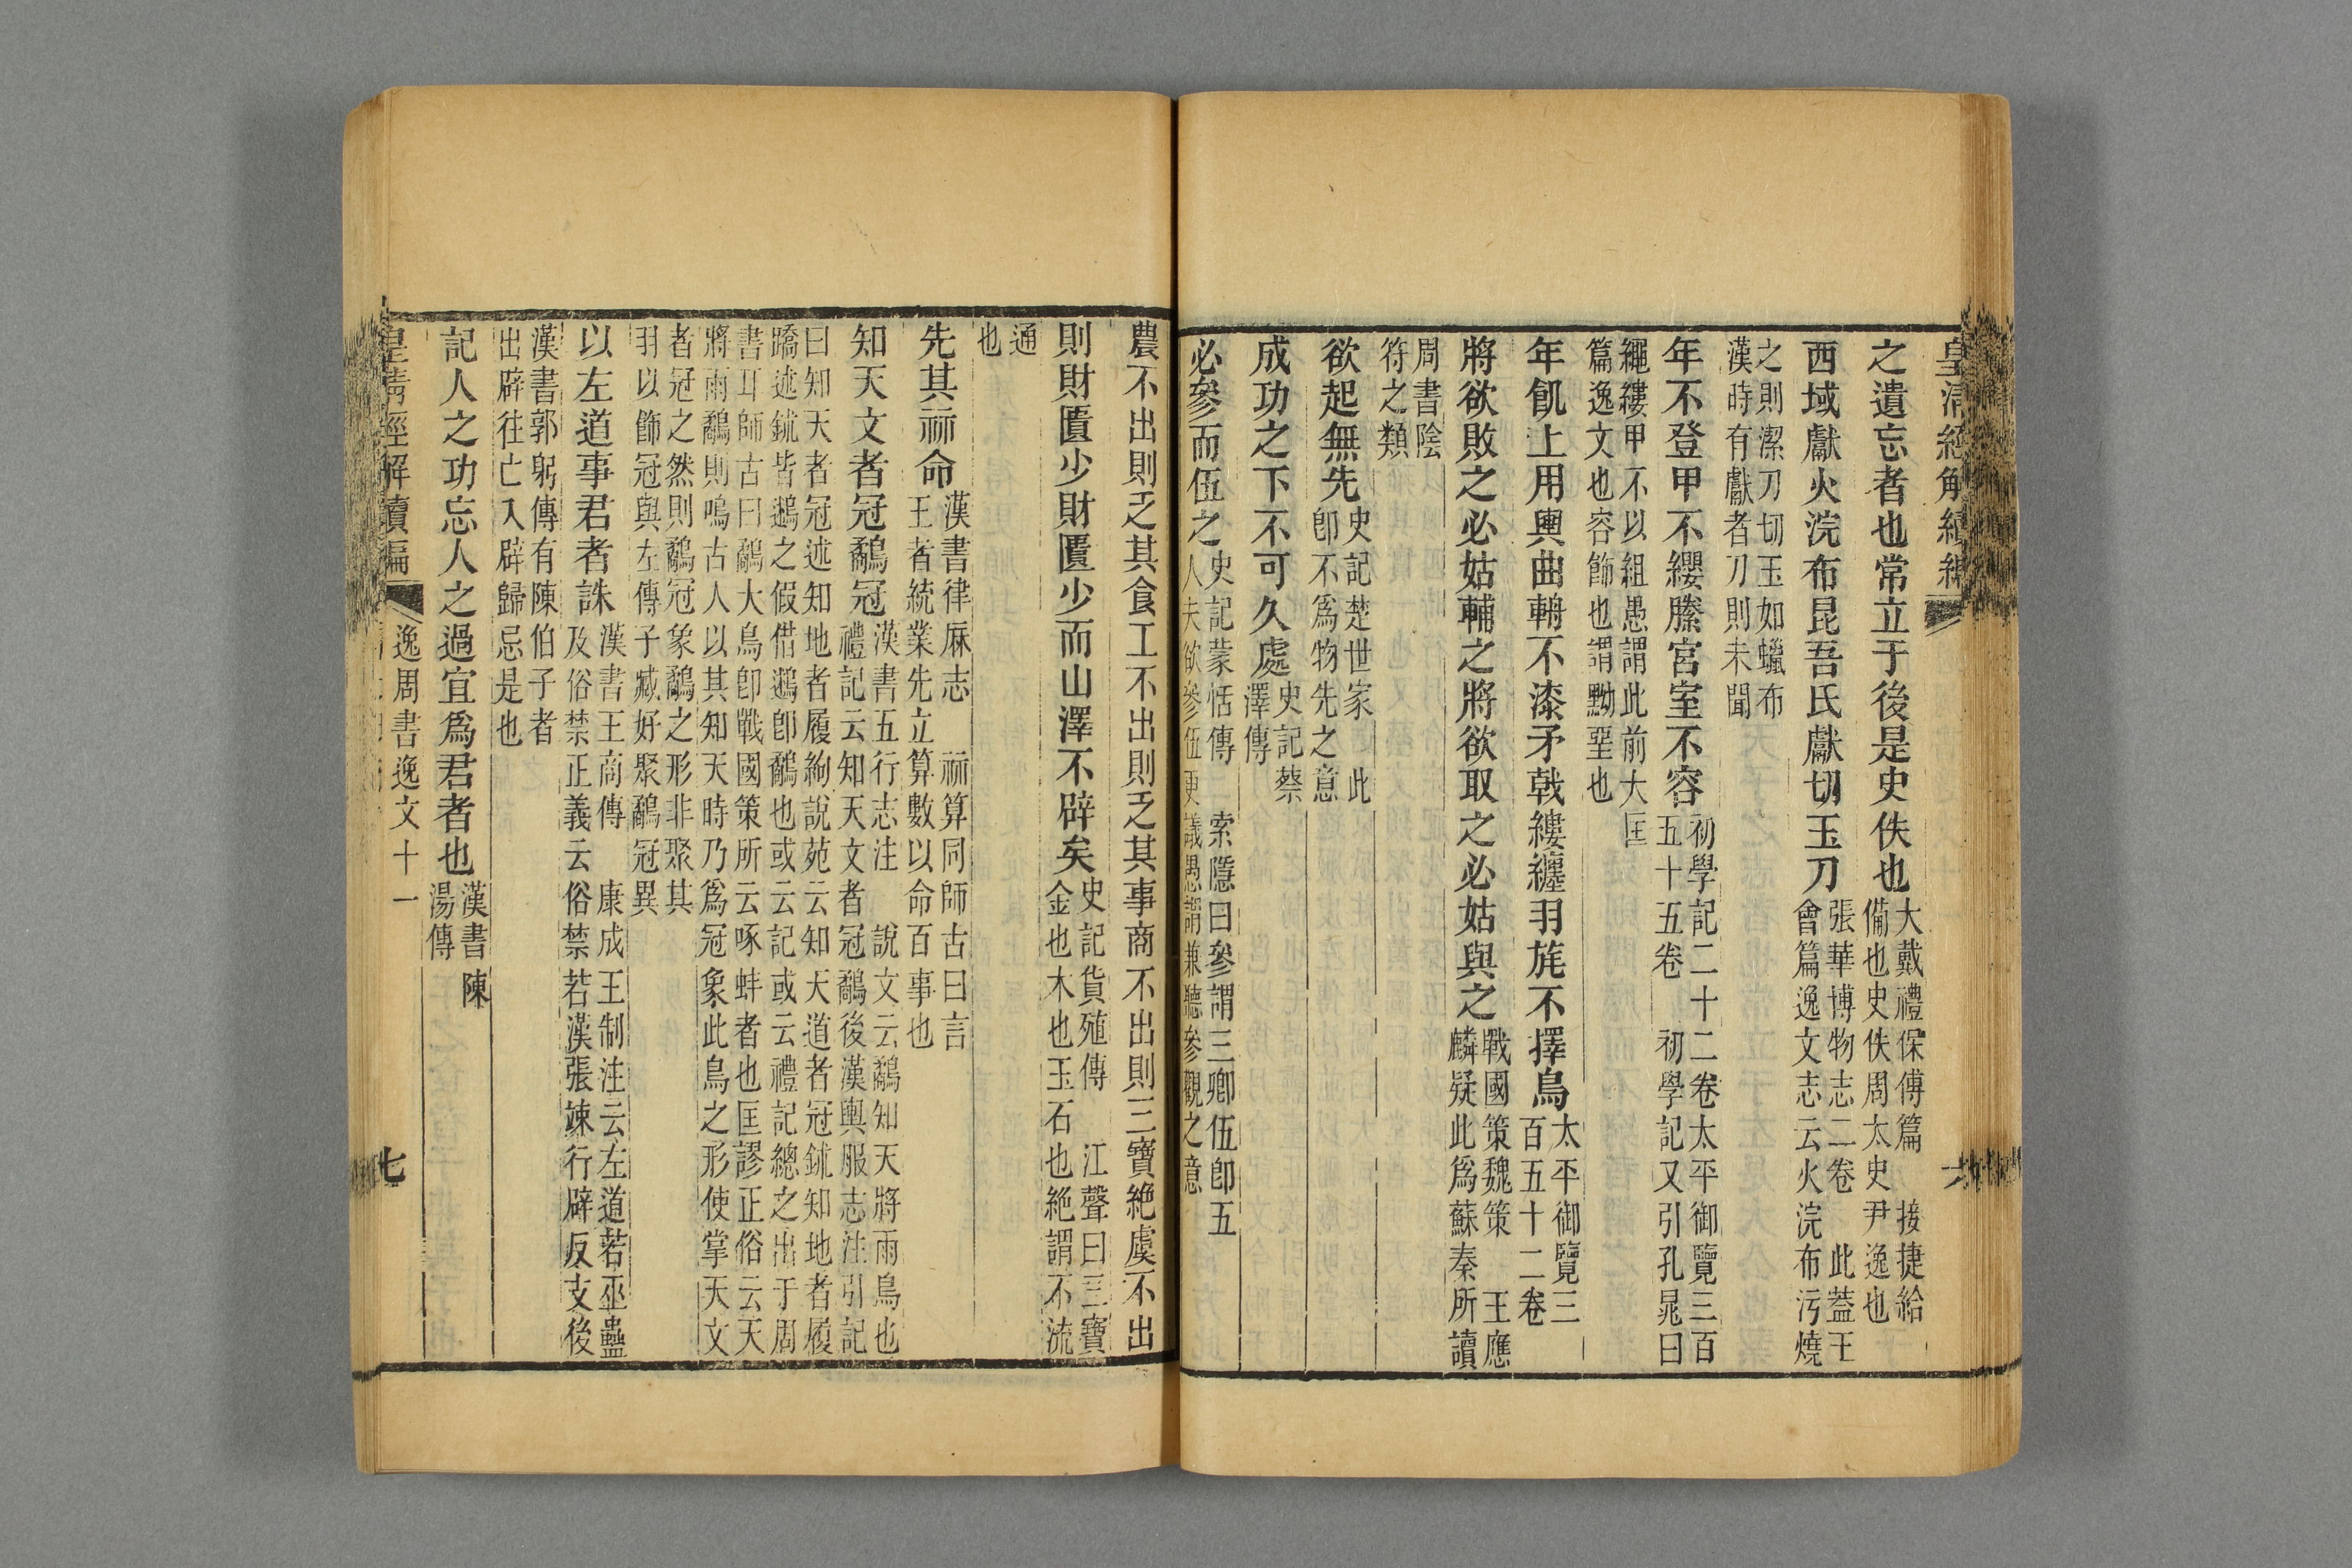 皇清經解續編
之遺忘者也常立于後是史佚也
大戴禮保傅篇　接捷給
備也史佚周太史尹逸也
西域獻火浣布昆吾氏獻切玉刀
張華博物志二卷　此葢王
會篇逸文志云火浣布污燒
之則潔刀切玉如蠟布
漢時有獻者刀則未聞
年不登甲不纓縢宮室不容
初學記二十二卷太平御覽三百
五十五卷　初學記又引孔晁曰
繩縷甲不以組愚謂此前大匡
篇逸文也容飾也謂黝堊也
年飢上用輿曲輈不漆矛戟縷纏羽旄不擇鳥
太平御覽三
百五十二卷
將欲敗之必姑輔之將欲取之必姑與之
戰國策魏策　王應
麟疑此爲蘇秦所讀
周書陰
符之類
欲起無先
史記楚世家　此
卽不爲物先之意
成功之下不可久處
史記蔡
澤傳
必參而伍之
史記蒙恬傳　索隱曰參謂三卿伍卽五
人夫欲參伍更議愚謂兼聽參觀之意
農不出則乏其食工不出則乏其事商不出則三寶絶虞不出
則財匱少財匱少而山澤不辟矣
史記貨殖傳　江聲曰三寶
金也木也玉石也絶謂不流
通
也
先其祘命
漢書律厤志　祘算同師古曰言
王者統業先立算數以命百事也
知天文者冠鷸冠
漢書五行志注　說文云鷸知天將雨鳥也
禮記云知天文者冠鷸後漢輿服志注引記
曰知天者冠述知地者履絇說苑云知天道者冠鉥知地者履
蹻述鉥皆鷸之假借鷸卽鷸也或云記或云禮記總之出于周
書耳師古曰鷸大鳥卽戰國策所云啄蚌者也匡謬正俗云天
將雨鷸則鳴古人以其知天時乃爲冠象此鳥之形使掌天文
者冠之然則鷸冠象鷸之形非聚其
羽以飾冠與左傳子臧好聚鷸冠異
以左道事君者誅
漢書王商傳　康成王制注云左道若巫蠱
及俗禁正義云俗禁若漢張竦行辟反支後
漢書郭躬傳有陳伯子者
出辟往亡入辟歸忌是也
記人之功忘人之過宜爲君者也
漢書陳
湯傳
皇清經解續編
逸周書逸文十一
七